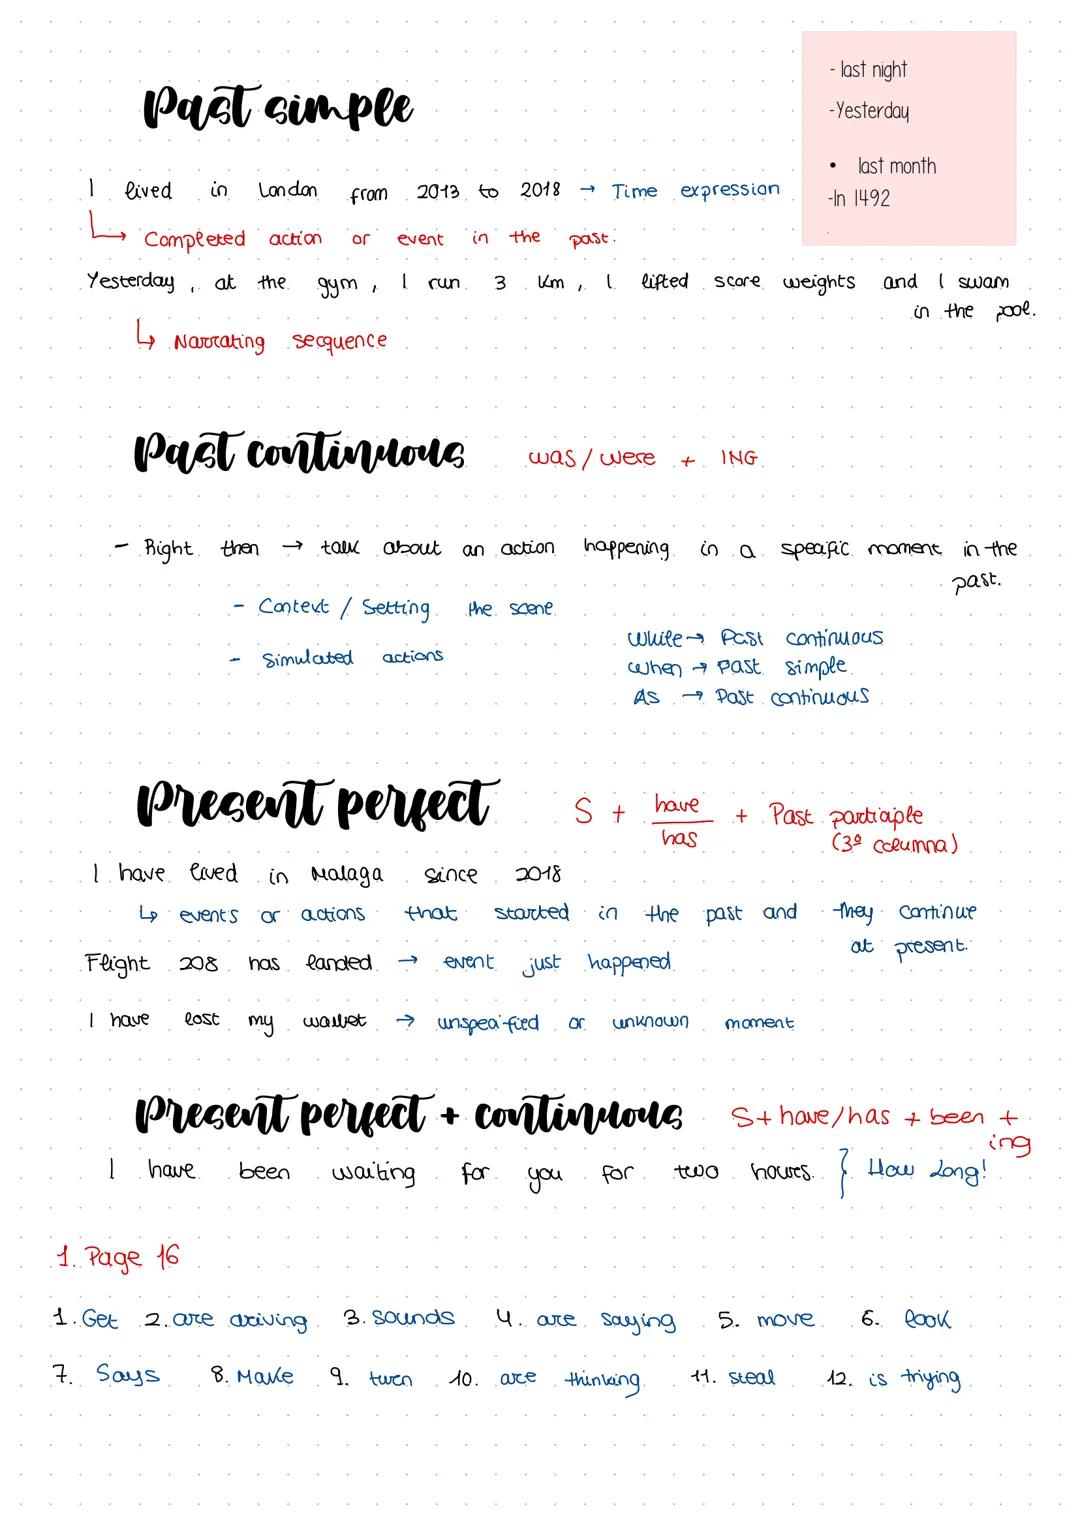 - last night
-Yesterday
• last month
-In 1492
Past simple
I lived in London from 2013 to 2018 → Time expression
↳ Completed action or event in the past.
Yesterday, at the gym, I run 3 km, I lifted score weights and I swam
in the pool.
↳ Narrating secquence
Past continuous was/were + ING
- Right then → talk about an action happening in a specific moment in the
past.
- Context / Setting the scene
- Simulated actions
While → Past continuous
When → Past simple
As → Past continuous
Present perfect S + have/has + Past participle
(3ª columna)
I have lived in Malaga since 2018
↳ events or actions that started in the past and they continue
at present.
Flight 208 has landed → event just happened
I have lost my wallet → unspecified or unknown moment
Present perfect + continuous S + have/has + been +
ing
I have been waiting for you for two hours. } How Long!
1. Page 16
1. Get 2. are driving 3. sounds 4. are saying 5. move 6. look
7. Says 8. Make 9. turn 10. are thinking 11. steal 12. is triying